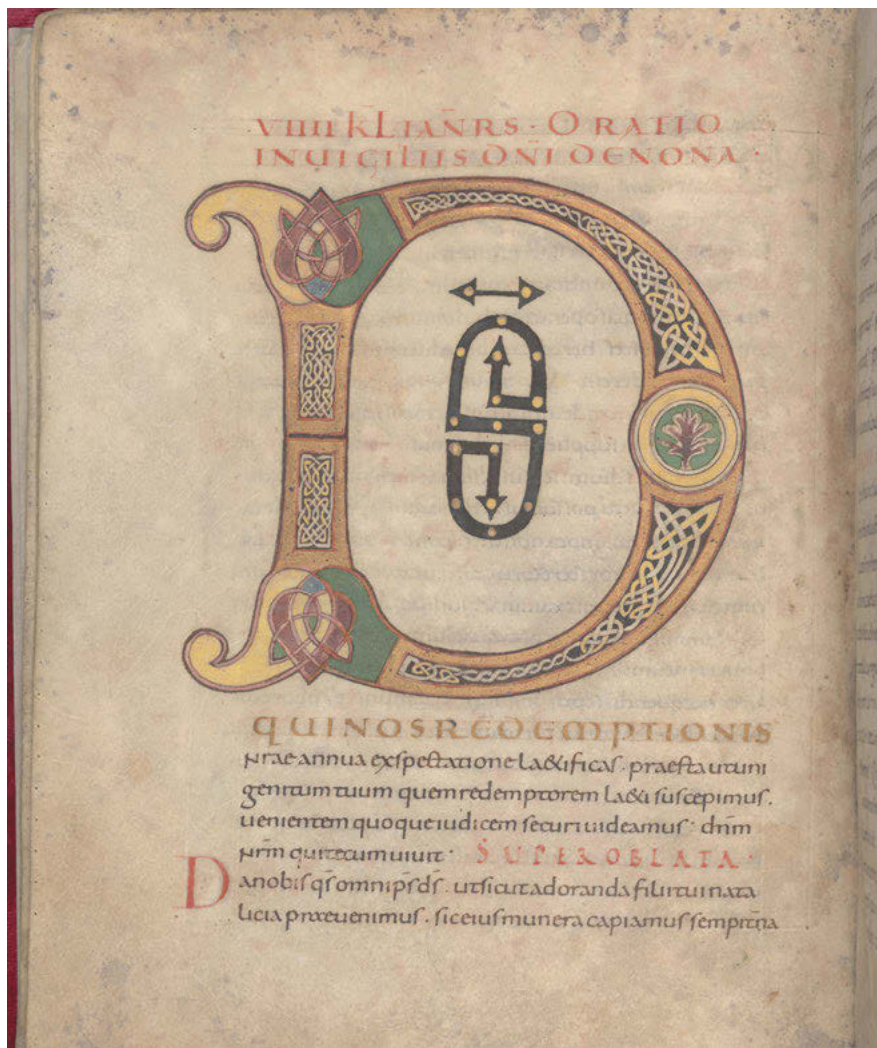 VIIII KL IANRS · ORATIO
IN VIGILIIS DNI DE NONA ·
D
QUI NOS REDEMPTIONIS
nrae annua exspectatione laetificas · praesta ut uni
genitum tuum quem redemptorem laeti suscepimus ·
uenientem quoque iudicem securi uideamus · dnm
nrm qui tecum uiuit · SUPER OBLATA ·
Da nobis qs omnips ds · ut sicut adoranda filii tui nata
licia praeuenimus · sic eius munera capiamus sempitna